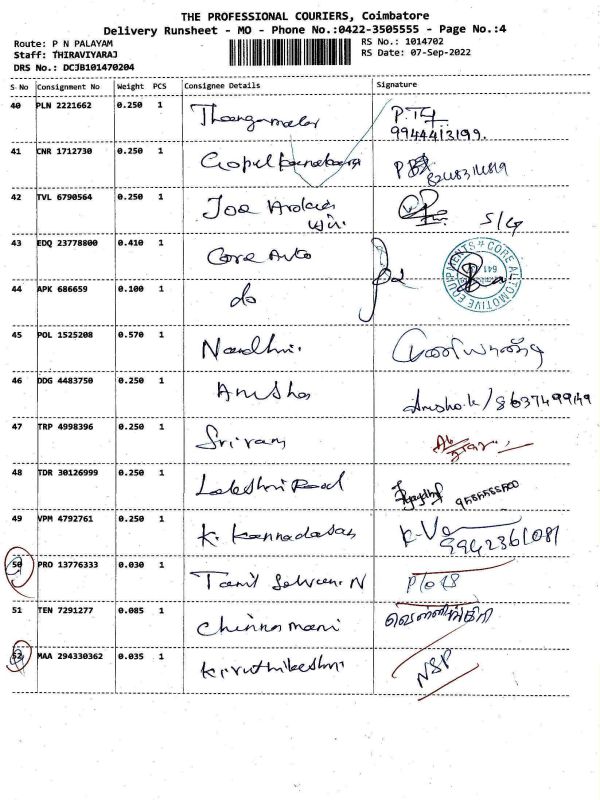 THE PROFESSIONAL COURIERS, Coimbatore
Delivery Runsheet - MO - Phone No.:0422-3505555 - Page No.:4
Route: P N PALAYAM
RS No.: 1014702
Staff: THIRAVIYARAJ
RS Date: 07-Sep-2022
DRS No.: DCJB101470204
S No Consignment No Weight PCS Consignee Details Signature
40 PLN 2221662 0.250 1 Thangamalar
9944413199.
41 CNR 1712730 0.250 1
42 TVL 6790564 0.250 1 Joe
43 EDQ 23778800 0.410 1 Core Auto
CORE AUTOMOTIVE EQUIPMENTS
641
44 APK 686659 0.100 1 do
45 POL 1525208 0.570 1 Nandhini
46 DDG 4483750 0.250 1 Anusha
Anusha.k/8637499149
47 TRP 4998396 0.250 1 Sriram
48 TDR 30126999 0.250 1
49 VPM 4792761 0.250 1 K. Kannadasan
9942361081
50 PRO 13776333 0.030 1 Tamil Selvan. N
51 TEN 7291277 0.085 1 Chinnamani
52 MAA 294330362 0.035 1 Kiruthikeshni NSP